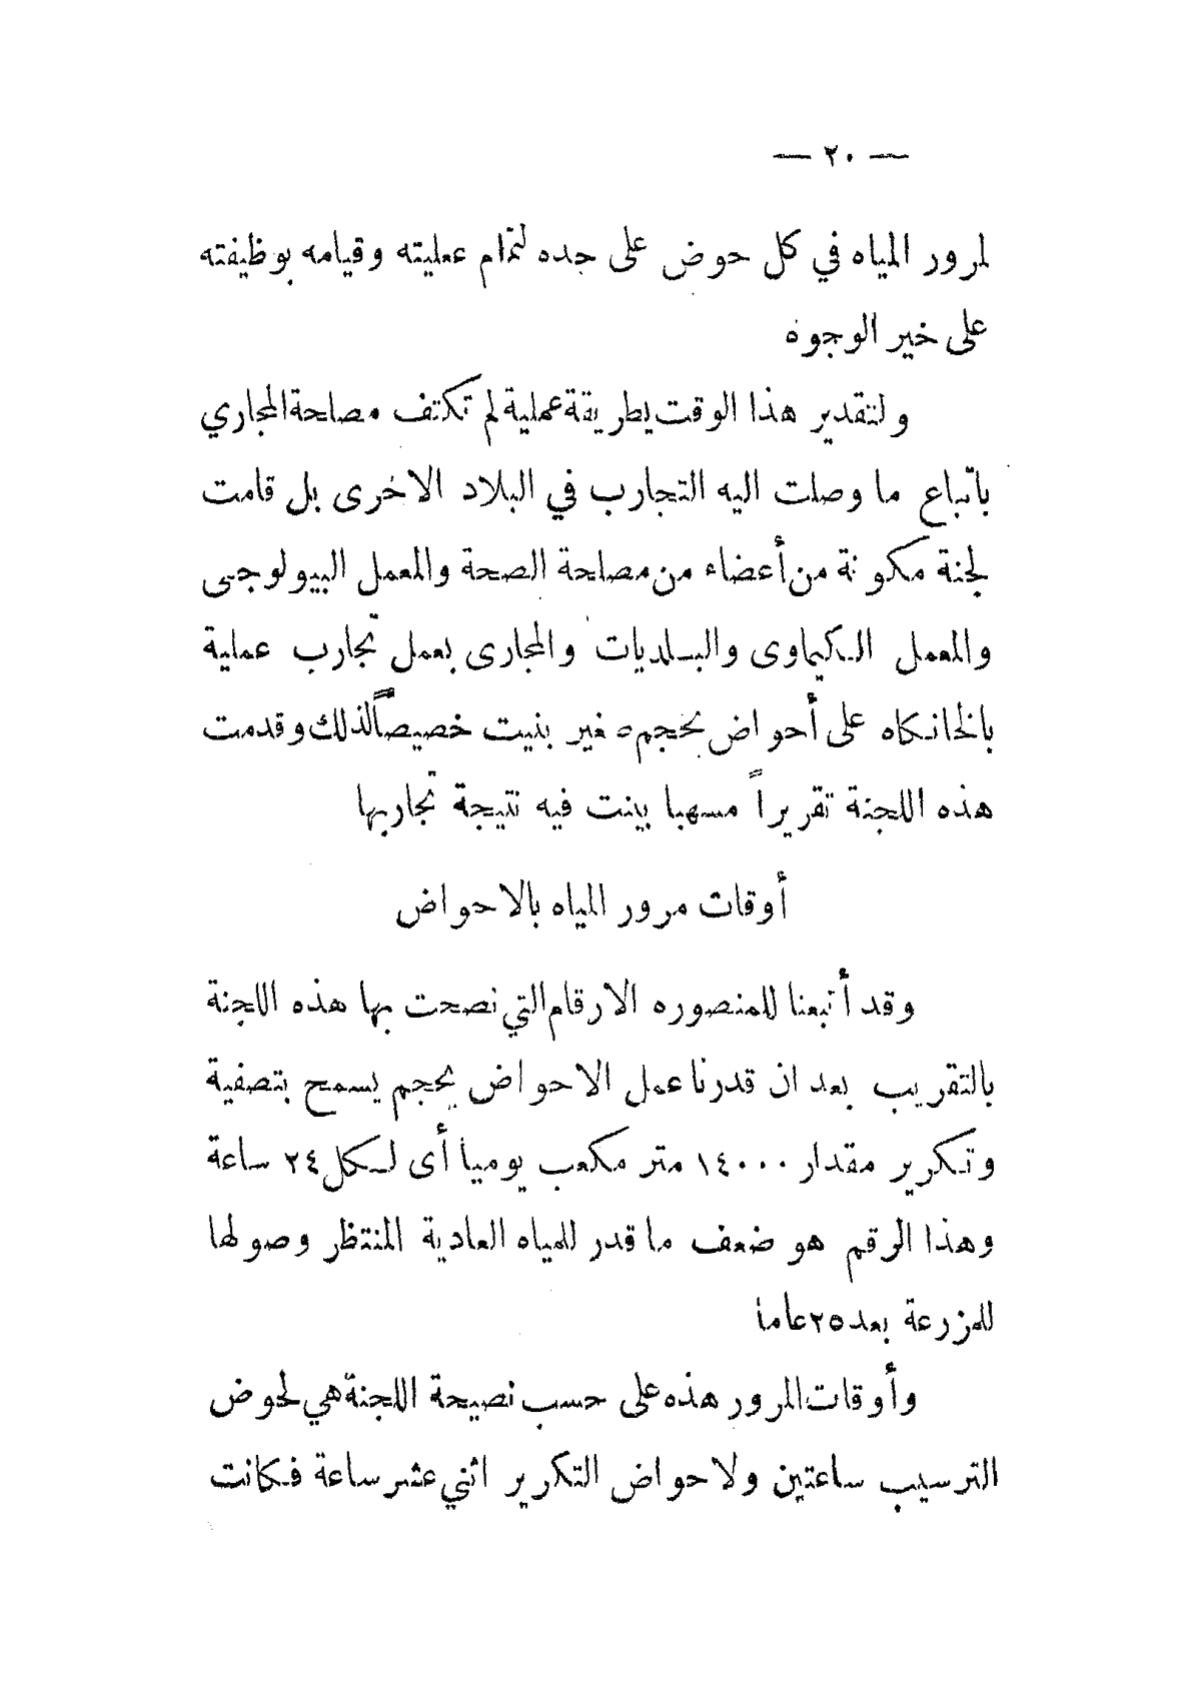 — ٢٠ —
لمرور المياه في كل حوض على حده لتمام عمليته وقيامه بوظيفته
على خير الوجوه
ولتقدير هذا الوقت بطريقة عملية لم تكتف مصلحة المجاري
باتباع ما وصلت اليه التجارب في البلاد الاخرى بل قامت
لجنة مكونة من أعضاء من مصلحة الصحة والمعمل البيولوجى
والمعمل الكيماوى والبلديات والمجارى بعمل تجارب عملية
بالخانكاه على أحواض بحجم صغير بنيت خصيصاً لذلك وقدمت
هذه اللجنة تقريراً مسهبا بينت فيه نتيجة تجاربها
أوقات مرور المياه بالاحواض
وقد أتبعنا للمنصوره الارقام التي نصحت بها هذه اللجنة
بالتقريب بعد ان قدرنا عمل الاحواض بحجم يسمح بتصفية
وتكرير مقدار ١٤٠٠٠ متر مكعب يوميا أى لكل ٢٤ ساعة
وهذا الرقم هو ضعف ما قدر للمياه العادية المنتظر وصولها
للمزرعة بعد ٢٥ عاما
وأوقات المرور هذه على حسب نصيحة اللجنة هي لحوض
الترسيب ساعتين ولاحواض التكرير اثني عشر ساعة فكانت